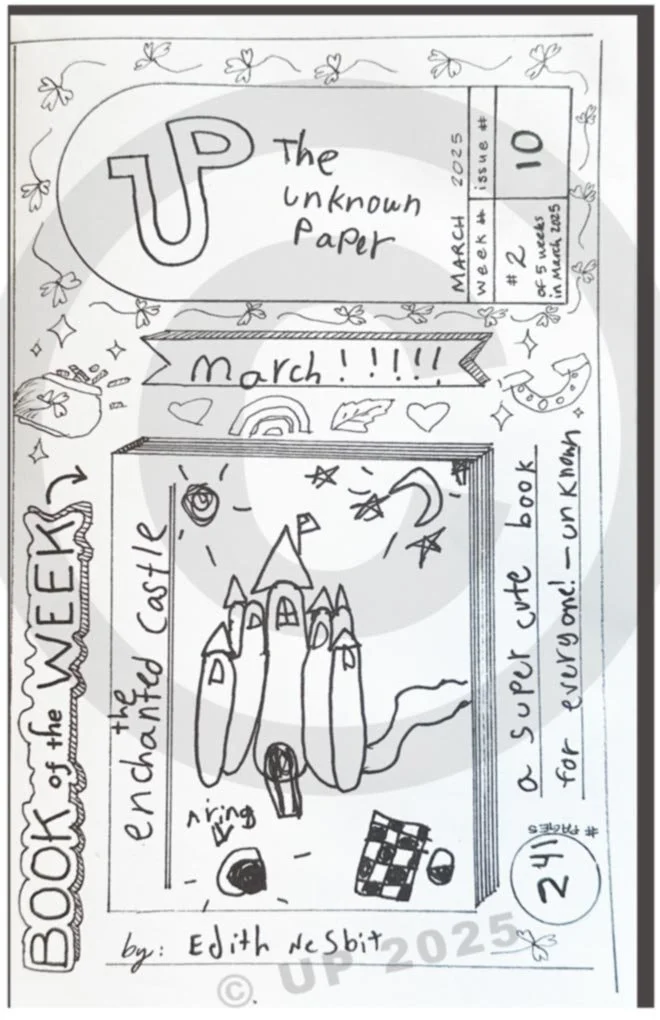 UP
The
unknown
Paper
MARCH 2025
week #
issue #
#2
of 5 weeks
in March 2025
10
March!!!!!
BOOK of the WEEK
the
enchanted castle
a ring
by: Edith Nesbit
a super cute book
for everyone! - unknown
241
# PAGES
© UP 2025